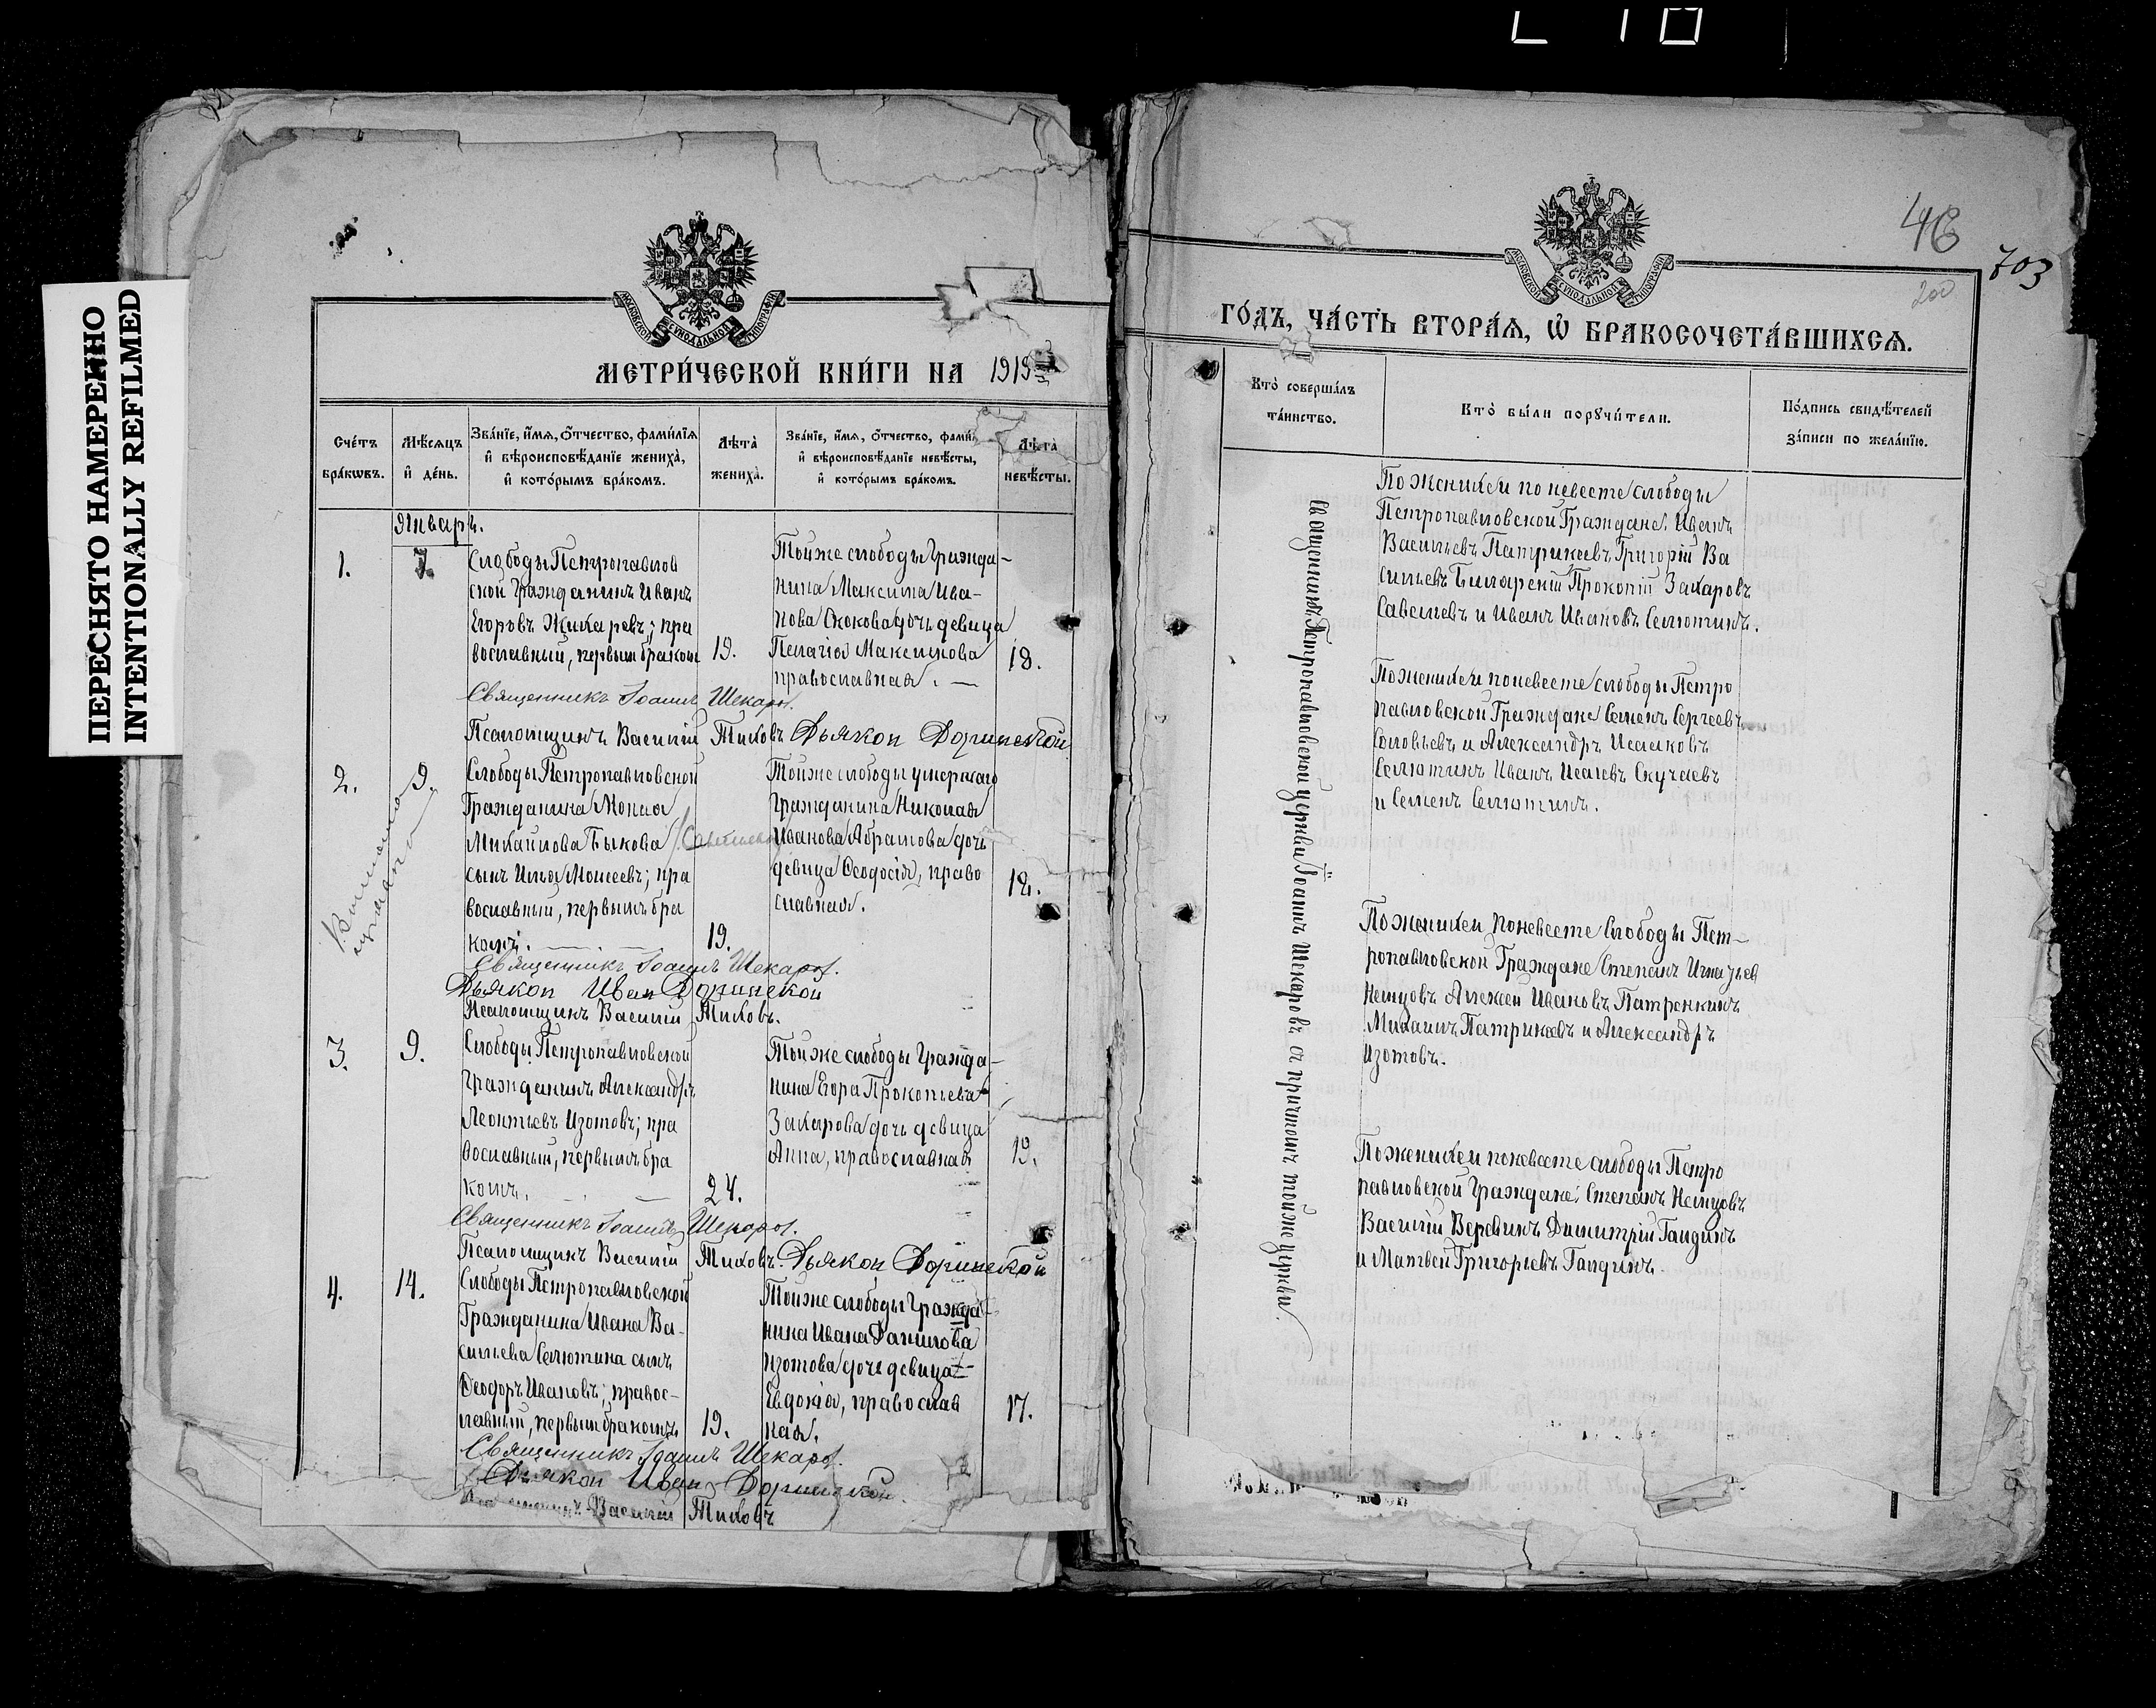 ПЕРЕСНЯТО НАМЕРЕННО
INTENTIONALLY REFILMED
МОСКОВСКОЙ СѴНОДАЛЬНОЙ ТИПОГРАФІИ
МЕТРИ́ЧЕСКОЙ КНИ́ГИ НА 1919
Сче́тъ бра́кѡвъ.
Мѣ́сѧцъ и҆ де́нь.
Зва́нїе, и҆́мѧ, ѻ҆́тчество, фами́лїѧ и҆ вѣроисповѣ́данїе жениха̀, и҆ кото́рымъ бра́комъ.
Лѣ́та жениха̀.
Зва́нїе, и҆́мѧ, ѻ҆́тчество, фами́ и҆ вѣроисповѣ́данїе невѣ́сты, и҆ кото́рымъ бра́комъ.
Лѣ́та невѣ́сты.
Январь.
1.
7.
Слободы Петропавлов
ской Гражданинъ Иванъ
Егоровъ Жихаревъ; пра
вославный, первым браком
19.
Тойже слободы Гражда-
нина Максима Ива-
нова Скокова дочь девица
Пелагія Максимова
православная. —
18.
Священникъ Іоаннъ Шекаров.
Псаломщикъ Василій Тиховъ Дьякон Доринской
2.
9.
Слободы Петропавловской
Гражданина Моисея
Михайлова Быкова
сынъ Илья Моисеевъ; пра
вославный, первымъ бра
комъ.
19.
Тойже слободы умершаго
Гражданина Николая
Иванова Абрамова дочь
девица Ѳеодосія, право
славная.
18.
Священникъ Іоаннъ Шекаров.
Дьякон Иван Доринской
Псаломщикъ Василій Тиховъ.
3.
9.
Слободы Петропавловской
Гражданинъ Александръ
Леонтьевъ Изотовъ; пра
вославный, первымъ бра
комъ.
24.
Тойже слободы Гражда-
нина Егора Прокопьева
Захарова дочь девица
Анна, православная
19.
Священникъ Іоаннъ Шекаров.
Псаломщикъ Василій Тиховъ. Дьякон Доринской
4.
14.
Слободы Петропавловской
Гражданина Ивана Ва-
сильева Селютина сынъ
Ѳеодоръ Ивановъ; правос-
лавный, первым бракомъ
19.
Тойже слободы Гражда-
нина Ивана Данилова
Изотова дочь девица
Евдокія, православ
ная.
17.
Священникъ Іоаннъ Шекаров.
Дьякон Иван Доринской.
Василій Тиховъ
МОСКОВСКОЙ СѴНОДАЛЬНОЙ ТИПОГРАФІИ
46
703
200
ГО́ДЪ, ЧА́СТЬ ВТОРА́Ѧ, Ѽ БРАКОСОЧЕТА́ВШИХСѦ.
Кто̀ соверша́лъ та́инство.
Кто̀ бы́ли порꙋчи́тели.
По́дпись свидѣ́телей за́писи по жела́нїю.
Священникъ Петропавловской церкви Іоаннъ Шекаровъ съ причтомъ тойже церкви
По женихеи по невесте слободы
Петропавловской Граждане: Иванъ
Васильевъ Патрикеевъ Григорій Ва
сильевъ Биларскій Прокопій Захаровъ
Савельевъ и Иванъ Ивановъ Селютинъ.
По женихеи по невесте слободы Петро
павловской Граждане Семенъ Сергеевъ
Соловьевъ и Александръ Исааковъ
Селютинъ Иванъ Исаевъ Скучаевъ
и Семенъ Селютинъ.
По женихеи по невесте Слободы Пет-
ропавловской Граждане Степанъ Игнатьев
Немцовъ Алексей Ивановъ Патренкинъ
Михаилъ Патрикеевъ и Александръ
Изотовъ.
По женихеи по невесте слободы Петро
павловской Граждане: Степанъ Немцовъ
Василій Веревинъ Димитрій Гандинъ
и Матвей Григорьевъ Гандинъ.